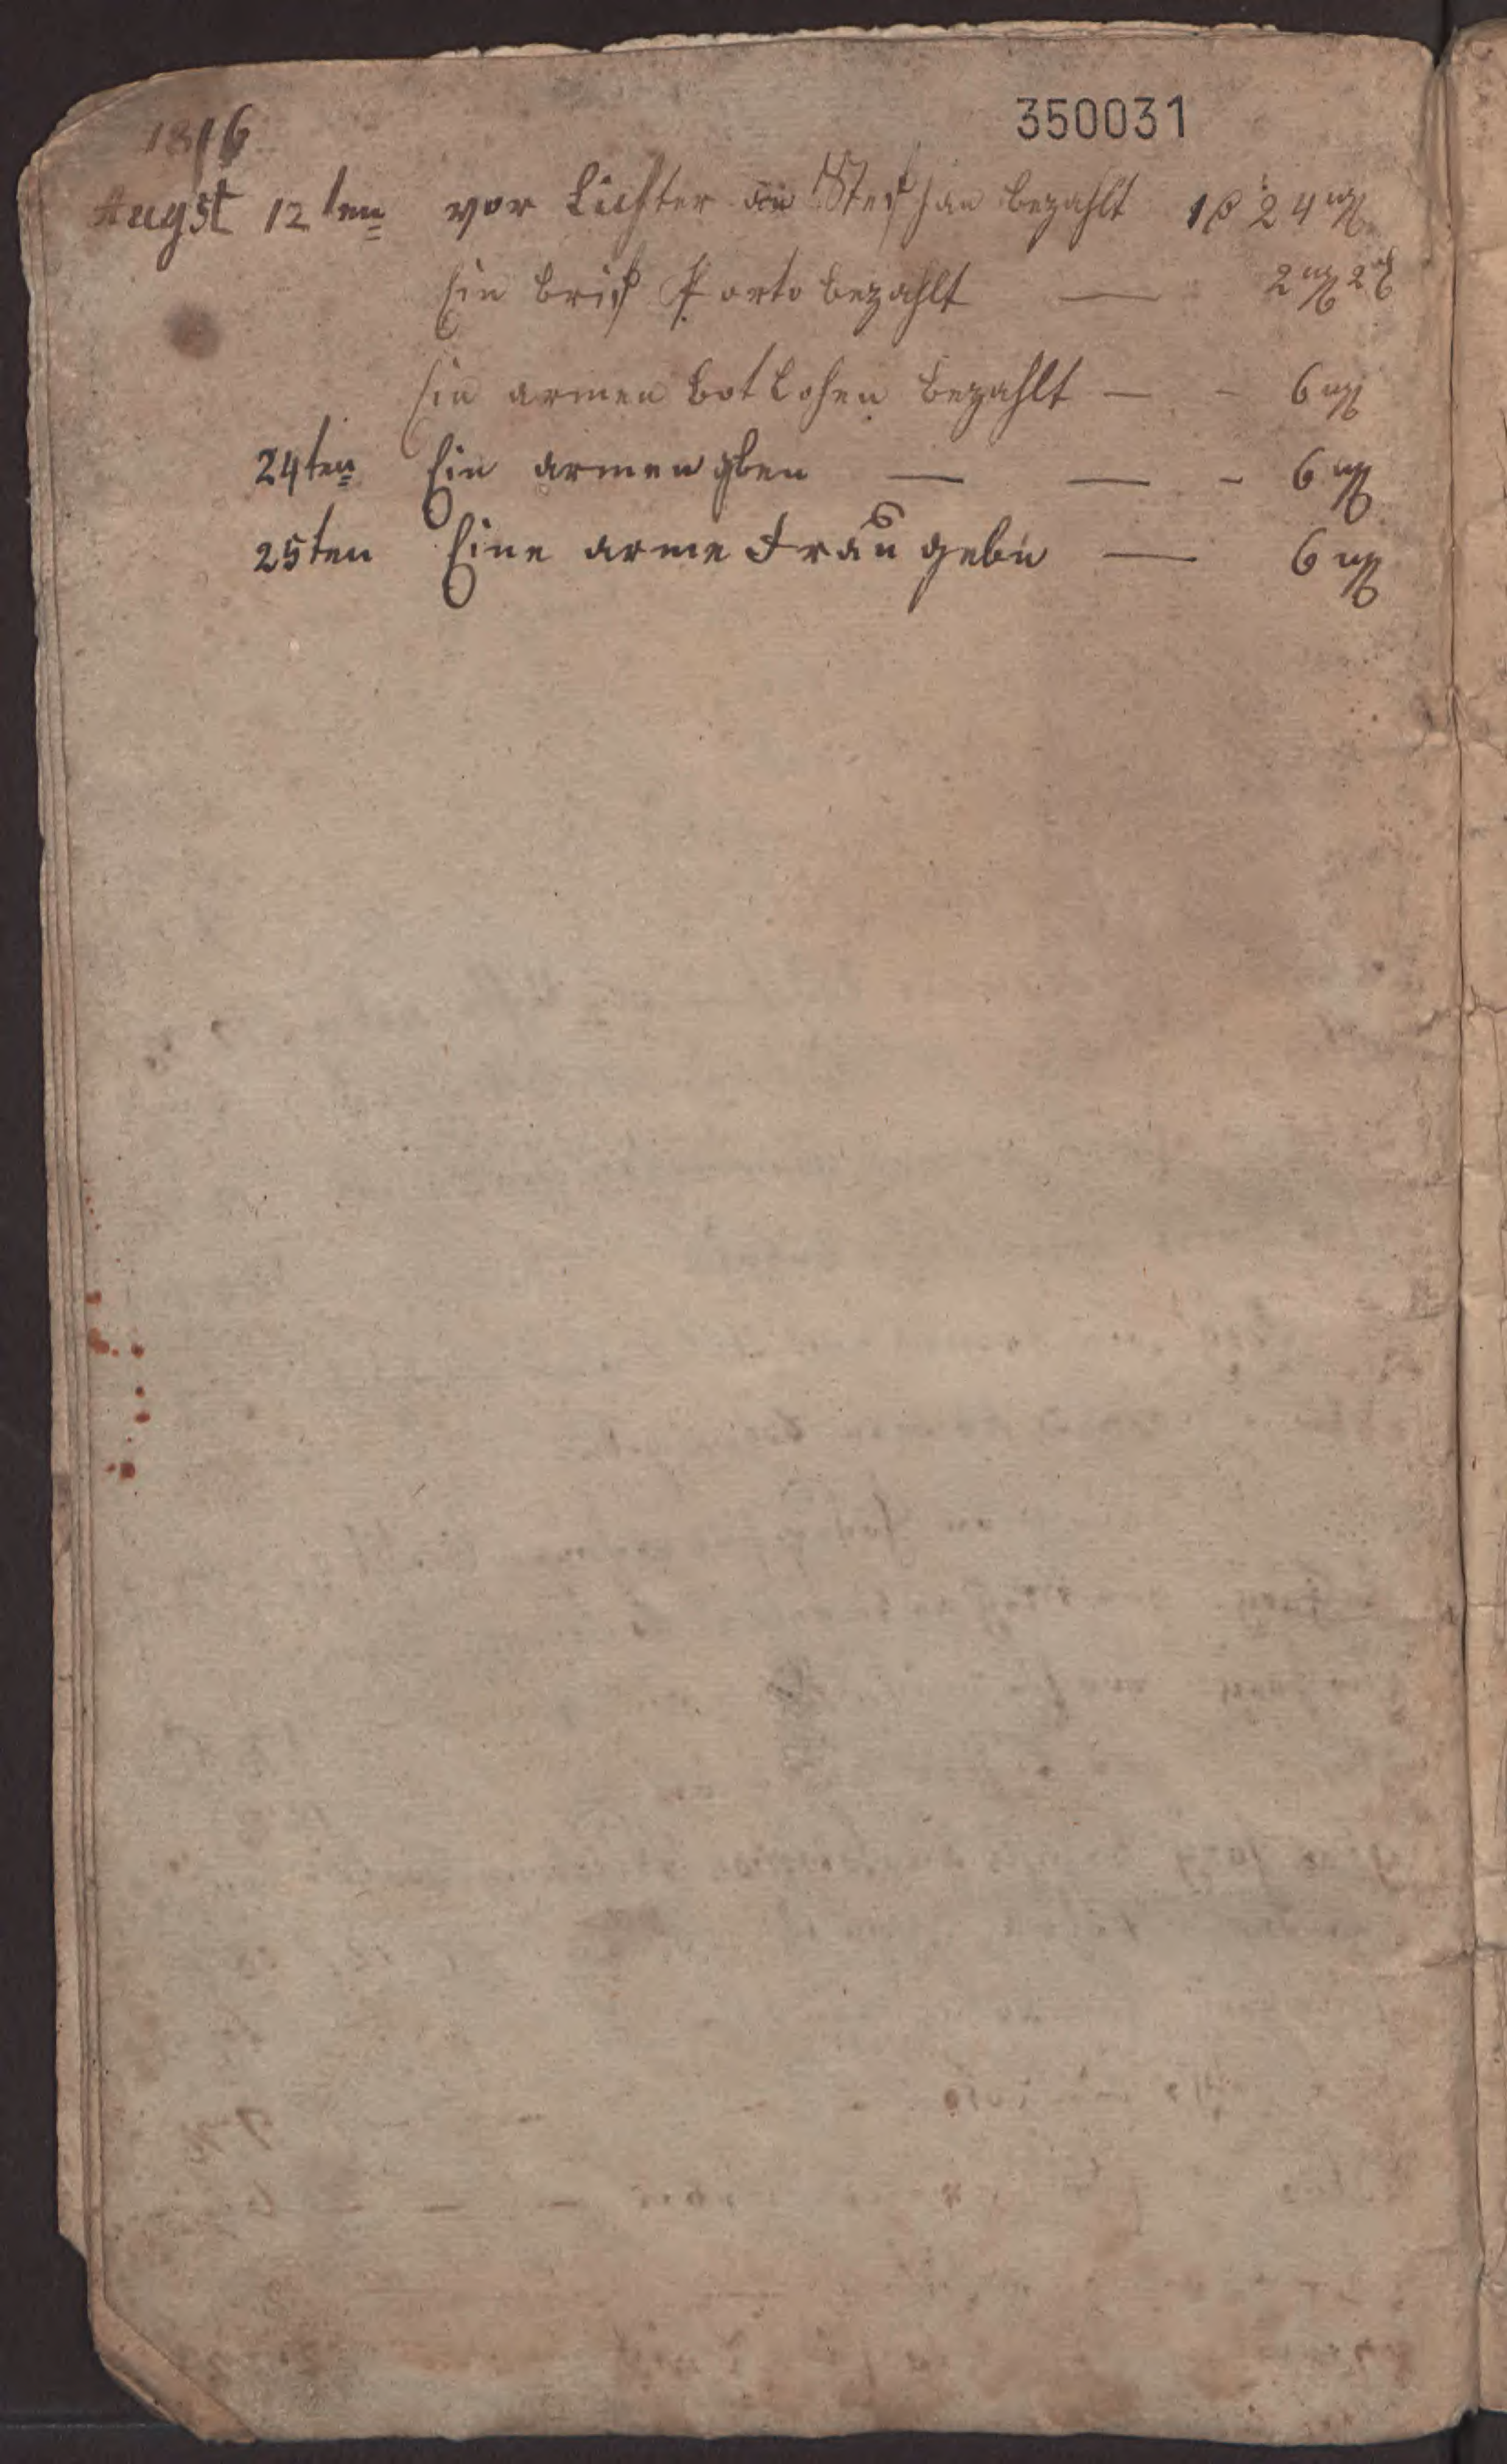 350031
1816
Augst 12ten vor Lichter an Stephan bezahlt 1 ß 24 mg
Ein brief Porto bezahlt — 2 mg 2 d
Ein armen bot Lohen bezahlt — - 6 mg
24ten Ein armen gben — — - 6 mg
25ten Eine arme Frau gebn — 6 mg